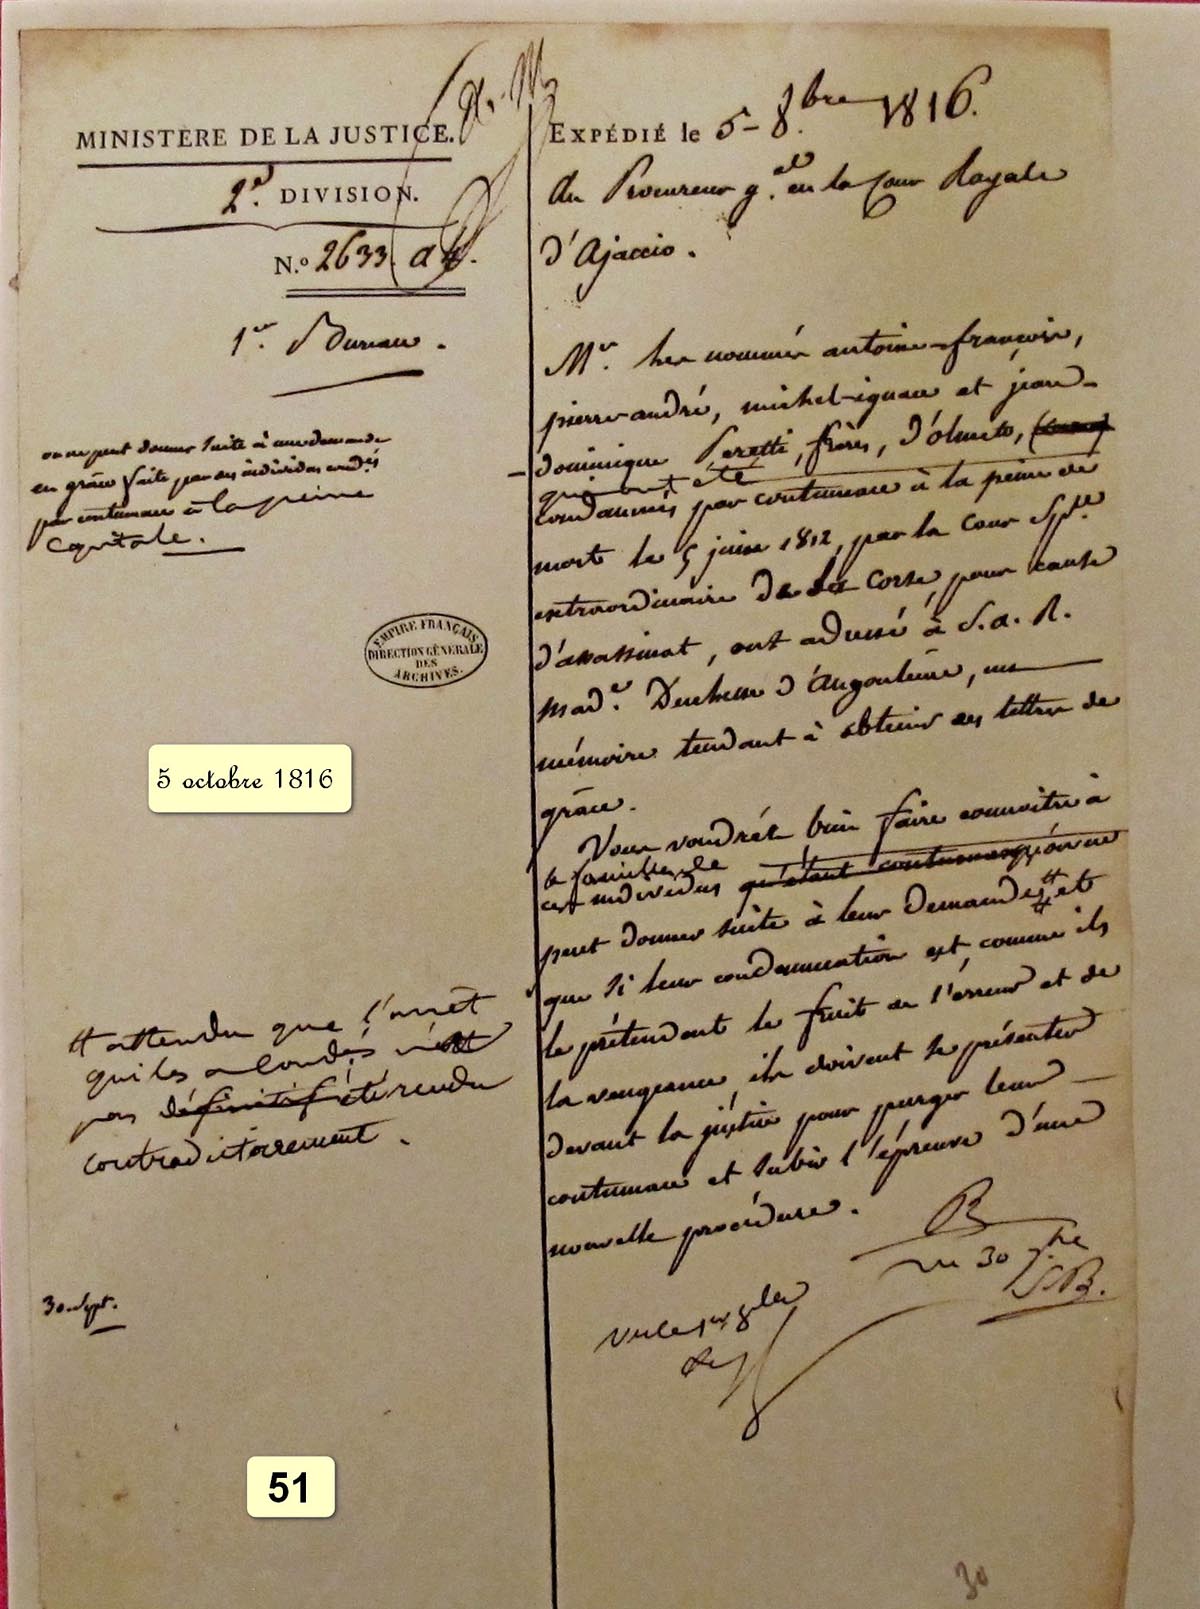 MINISTÈRE DE LA JUSTICE.
2e. DIVISION.
N.o 2633. a 4.
1er. Bureau.
on ne peut donner suite à une demande
en grâce faite par des individus condés
par contumace à la peine
Capitale.
EMPIRE FRANÇAIS
DIRECTION GÉNÉRALE
DES
ARCHIVES.
5 octobre 1816
# attendu que l'arrêt
qui les a condés n'est
pas définitif été rendu
contradictoirement.
30 Sept.
51
EXPÉDIÉ le 5 - 8.bre 1816.
au Procureur g.al en la Cour Royale
d'Ajaccio.
Mr. les nommés antoine-françois,
pierre-andré, michel-ignace et jean-
dominique Peretti, frères, d'olmeto,
qui ont été
condamnés par contumace à la peine de
mort le 5 juin 1812, par la Cour Sple.
extraordinaire de la Corse, pour cause
d'assassinat, ont adressé à S. a. R.
Made. Duchesse d'angoulême, un
mémoire tendant à obtenir des lettres de
grâce.
Vous voudrés bien faire connoitre à
la famille de
ces individus qu'étant contumax, qu'on ne
peut donner suite à leur demande # et
que si leur condamnation est, comme ils
le prétendent le fruit de l'erreur et de
la vengeance, ils doivent se présenter
devant la justice pour purger leur
contumace et subir l'épreuve d'une
nouvelle procédure.
B
vu 30 7.bre
SB.
vu le 1er 8bre
30